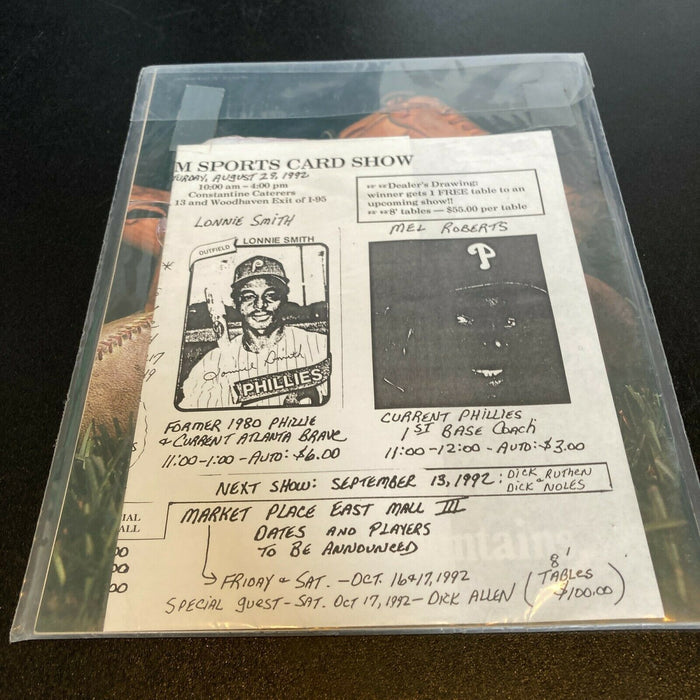 M SPORTS CARD SHOW
URDAY, AUGUST 29, 1992
10:00 am – 4:00 pm
Constantine Caterers
13 and Woodhaven Exit of I-95
Dealer's Drawing!
winner gets 1 FREE table to an
upcoming show!!
8' tables — $55.00 per table
LONNIE SMITH
MEL ROBERTS
OUTFIELD
LONNIE SMITH
P
P
Lonnie Smith
PHILLIES
FORMER 1980 PHILLIE
& CURRENT ATLANTA BRAVE
11:00-1:00 - AUTO: $6.00
CURRENT PHILLIES
1ST BASE COACH
11:00-12:00 - AUTO: $3.00
NEXT SHOW: SEPTEMBER 13, 1992: DICK RUTHEN
& DICK NOLES
MARKET PLACE EAST MALL III
DATES AND PLAYERS
TO BE ANNOUNCED
FRIDAY & SAT. — OCT. 16 & 17, 1992
SPECIAL GUEST - SAT. OCT 17, 1992 - DICK ALLEN
(8' TABLES
$100.00)
IAL
ALL
00
00
00
ntains